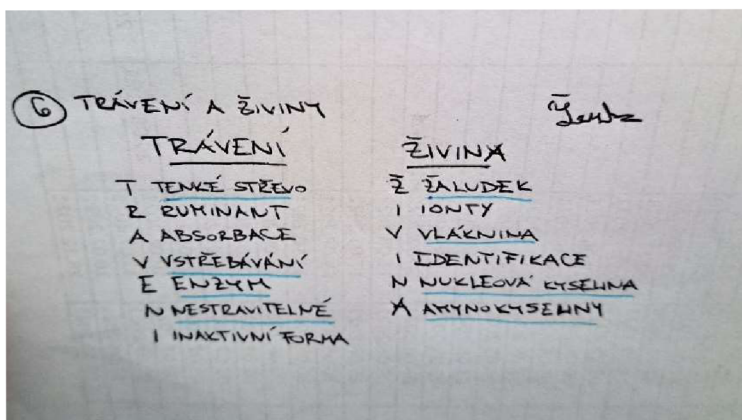 6 TRÁVENÍ A ŽIVINY
TRÁVENÍ
T TENKÉ STŘEVO
R RUMINANT
A ABSORBACE
V VSTŘEBÁVÁNÍ
E ENZYM
N NESTRAVITELNÉ
I INAKTIVNÍ FORMA
ŽIVINA
Ž ŽALUDEK
I IONTY
V VLÁKNINA
I IDENTIFIKACE
N NUKLEOVÁ KYSELINA
A AMYNOKYSELINY